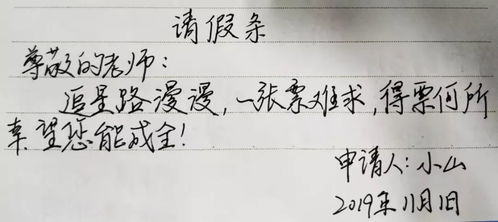 请假条
尊敬的老师：
追星路漫漫，一张票难求，得票何所
幸望您能成全！
申请人：小山
2019年11月1日